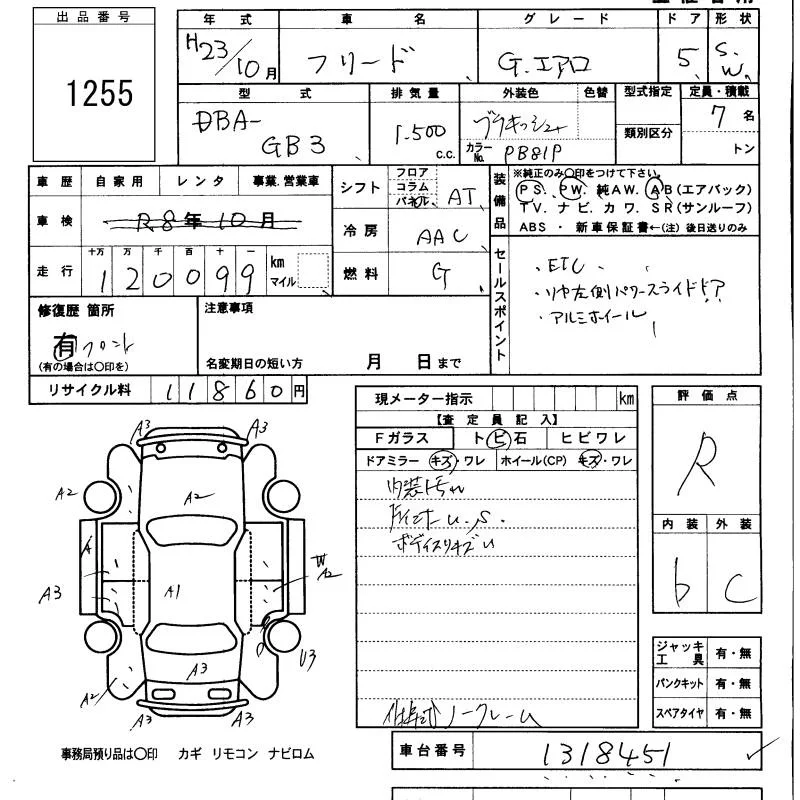 出品番号
1255
年式 車名 グレード ドア 形状
H23/10月 フリード G.エアロ 5 S.W
型式 排気量 外装色 色替 型式指定 定員・積載
DBA-GB3 1.500 c.c. カラーNo. PB81P 類別区分 7名 トン
車歴 自家用 レンタ 事業.営業車
車検 R8年10月
走行 十万 万 千 百 十 一 km マイル
120099
シフト フロア コラム パネル AT
冷房 AAC
燃料 G
装備品
※純正のみ〇印をつけて下さい。
PS. PW. 純AW. AB(エアバック)
TV. ナビ. カワ. SR(サンルーフ)
ABS ・ 新車保証書←(注) 後日送りのみ
セールスポイント
・ETC
・リヤ左側パワースライドドア
・アルミホイール
修復歴 箇所
有 フロント
(有の場合は〇印を)
注意事項
名変期日の短い方 月 日まで
リサイクル料 11860円
現メーター指示 km
【査定員記入】
Fガラス トビ石 ヒビワレ
ドアミラー キズ・ワレ ホイール(CP) キズ・ワレ
内装
評価点
R
内装 外装
b C
A3 A3
A2 A2
A
A3 A1 W A2
U3
A3
A2
A3 A3
ジャッキ工具 有・無
パンクキット 有・無
スペアタイヤ 有・無
ノークレーム
事務局預り品は〇印 カギ リモコン ナビロム
車台番号 1318451